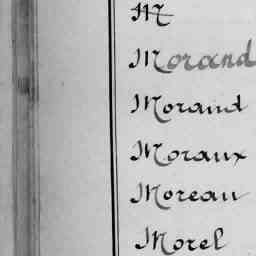 M
Morand
Morand
Moraux
Moreau
Morel